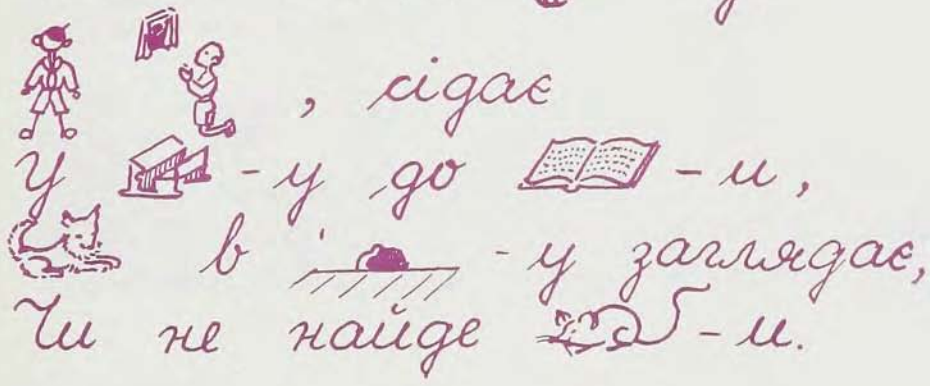 , сідає
У -у до -и,
в -у заглядає,
Чи не найде -и.